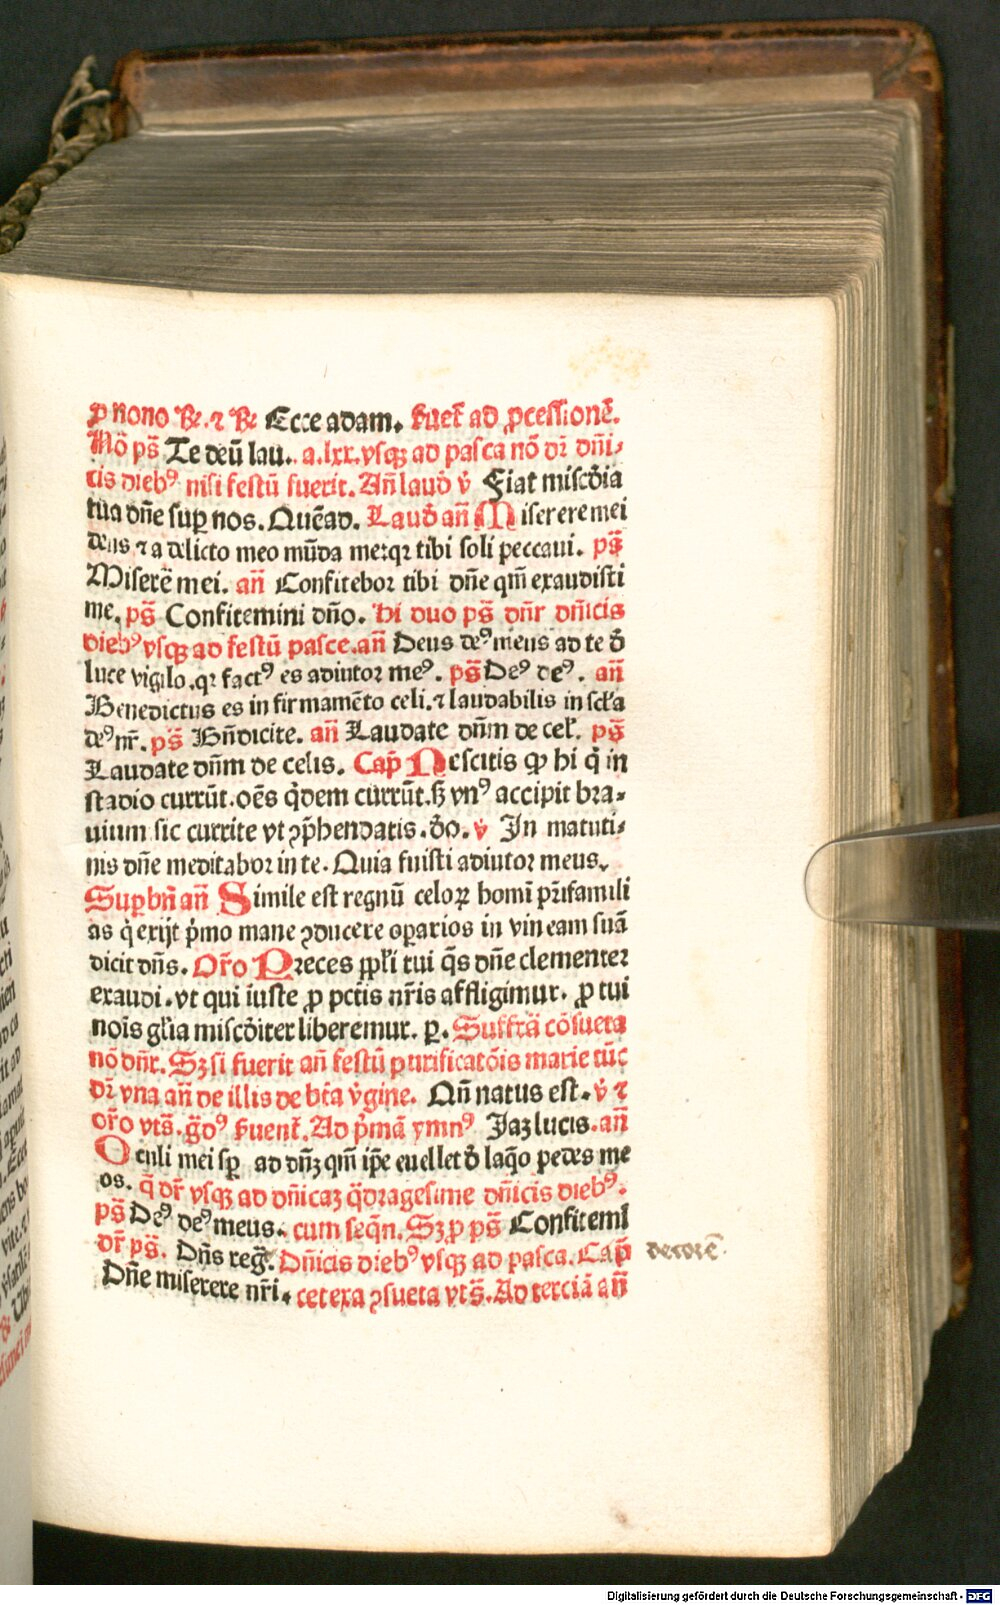 ꝓ nono ℟. ⁊ ℟ Ecce adam. Fuer̄t ad ꝓcessionē.
Nō ps̄ Te deū lau. a. lxx. vsqꝫ ad pasca nō dr̄ dn̄i-
cis diebꝰ nisi festū fuerit. An̄ laud̄ v̄ Fiat miscd̄ia
tua dn̄e suꝑ nos. Quēad. Laud̄ an̄ Miserere mei
deus ⁊ a delicto meo mūda me: qꝛ tibi soli peccaui. ps̄
Miserē mei. an̄ Confitebor tibi dn̄e qm̄ exaudisti
me. ps̄ Confitemini dn̄o. Hi duo ps̄ dn̄r dn̄icis
diebꝰ vsqꝫ ad festū pasce. an̄ Deus deꝰ meus ad te d̄
luce vigilo. qꝛ factꝰ es adiutor meꝰ. ps̄ Deꝰ deꝰ. an̄
Benedictus es in firmamēto celi. ⁊ laudabilis in scl̄a
deꝰ nr̄. ps̄ Bn̄dicite. an̄ Laudate dn̄m de cel̄. ps̄
Laudate dn̄m de celis. Cap̄ Nescitis ꝙ hi q̄ in
stadio currūt. oēs q̇dem currūt. sꝫ vnꝰ accipit bra-
uium sic currite vt ꝯp̄hendatis. d̄o. v̄ In matuti-
nis dn̄e meditabor in te. Quia fuisti adiutor meus.
Suꝑ bn̄ an̄ Simile est regnū celoꝝ homī pr̄ifamili
as q̇ exijt ṗmo mane ꝯducere oꝑarios in vineam suā
dicit dn̄s. Or̄o Preces ppl̄i tui q̄s dn̄e clementer
exaudi. vt qui iuste ꝓ pctīs nr̄is affligimur. ꝓ tui
nois̄ gl̄ia miscd̄iter liberemur. ꝑ. Suffrā cōsueta
nō dn̄r. Sꝫ si fuerit an̄ festū purificatōis marie tūc
dr̄ vna an̄ de illis de btā v̇gine. Qn̄ natus est. v̄ ⁊
or̄o vts̄. q̄dꝰ fuerit. Ad ṗmā ymnꝰ Jaꝫ lucis. an̄
Oculi mei sꝑ ad dn̄ꝫ qm̄ ip̄e euellet d̄ laq̄o pedes me
os. q̄ dr̄ vsqꝫ ad dn̄icaꝫ q̄dragesime dn̄icis diebꝰ.
ps̄ Deꝰ deꝰ meus. cum seqn̄. Sꝫ ꝓ ps̄ Confitemī
dr̄ ps̄. Dn̄s reg̃. Dn̄icis diebꝰ vsqꝫ ad pasca. Cap̄
Dn̄e miserere nr̄i. cetera ꝯsueta vts̄. Ad terciā an̄
decorē.
Digitalisierung gefördert durch die Deutsche Forschungsgemeinschaft - DFG